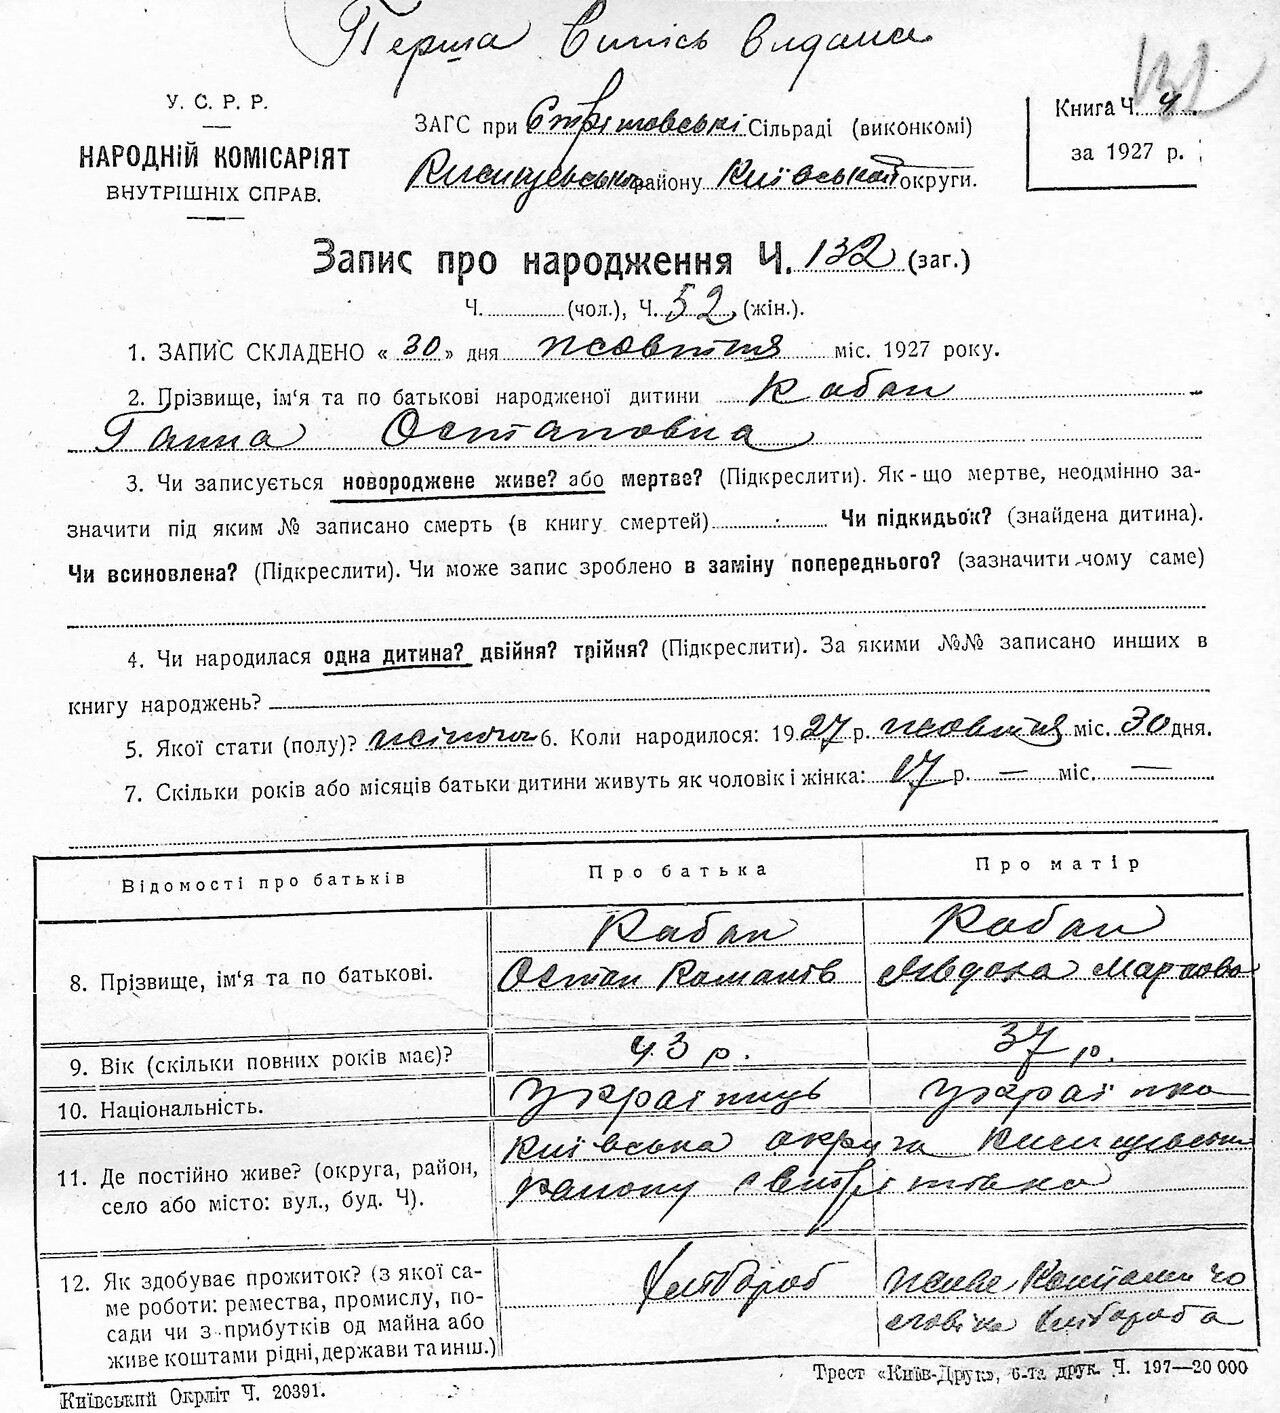 Перша випись видана
132
У. С. Р. Р.
НАРОДНІЙ КОМІСАРІЯТ
ВНУТРІШНІХ СПРАВ.
ЗАГС при Стрітовські Сільраді (виконкомі)
району Київської округи.
Книга Ч. 4
за 1927 р.
Запис про народження Ч. 132 (заг.)
Ч. (чол.), Ч. 52 (жін.).
1. ЗАПИС СКЛАДЕНО « 30 » дня жовтня міс. 1927 року.
2. Прізвище, ім'я та по батькові народженої дитини Кабан
Ганна Остаповна
3. Чи записується новороджене живе? або мертве? (Підкреслити). Як-що мертве, неодмінно за-
значити під яким № записано смерть (в книгу смертей) Чи підкидьок? (знайдена дитина).
Чи всиновлена? (Підкреслити). Чи може запис зроблено в заміну попереднього? (зазначити чому саме)
4. Чи народилася одна дитина? двійня? трійня? (Підкреслити). За якими №№ записано инших в
книгу народжень?
5. Якої стати (полу)? жіноча 6. Коли народилося: 1927 р. жовтня міс. 30 дня.
7. Скільки років або місяців батьки дитини живуть як чоловік і жінка: 17 р. — міс. —
Відомості про батьків Про батька Про матір
Кабан Кабан
8. Прізвище, ім'я та по батькові. Остап Явдоха Маркова
9. Вік (скільки повних років має)? 43 р. 37 р.
10. Національність. Українець Українка
11. Де постійно живе? (округа, район,
село або місто: вул., буд. Ч).
Київська округа
району с Витрітовка
12. Як здобуває прожиток? (з якої са-
ме роботи: ремества, промислу, по-
сади чи з прибутків од майна або
живе коштами рідні, держави та инш.)
Хлібороб
живе Коштами чо
ловіка хлібороба
Київський Окрліт Ч. 20391.
Трест «Київ-Друк», 6-та друк. Ч. 197—20 000